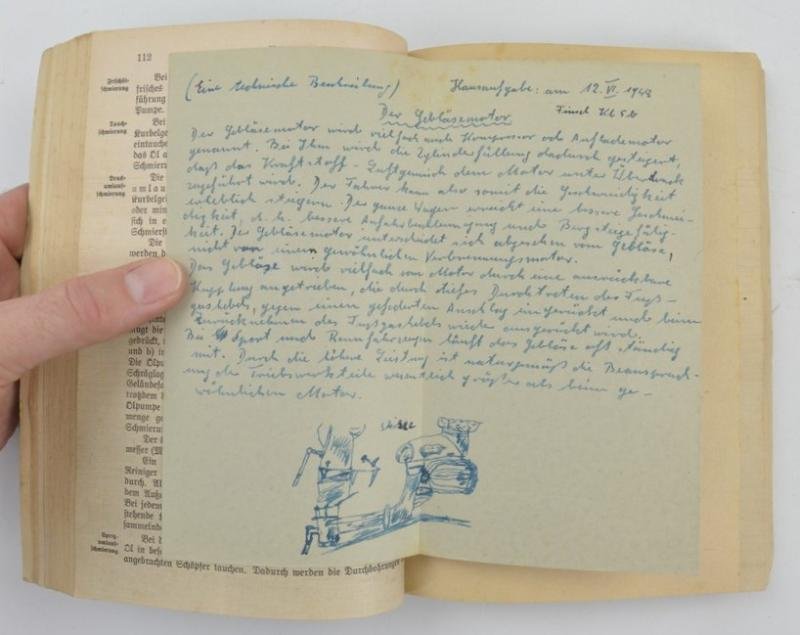 112
Frischöl-
schmierung
frisches
führung
Pumpe.
Tauch-
schmierung
Bei
Kurbelge
eintauche
das Öl a
Schmier
Druck-
umlauf-
schmierung
Die
umlau
Kurbelge
oder min
sich in o
Schmierst
Die
werden d
gedrückt, i
und b) in
Die Ölpu
Schräglag
Geländefa
trotzdem
Ölpumpe
menge ge
Schmieru
Der
messer (M
Ein
Reiniger
durch. Al
dem Auß
Bei jedem
stehende
sammelnde
Spreng-
umlauf-
schmierung
Bei
Öl in bese
angebrachten Schöpfer tauchen. Dadurch werden die Durchbohrungen
(Eine technische Beschreibung) Hausaufgabe: am 12. VI. 1943
Der Gebläsemotor Kl 5b
Der Gebläsemotor wird vielfach auch Kompressor od. Auflademotor
genannt. Bei Ihm wird die Zylinderfüllung dadurch gesteigert,
daß das Kraftstoff-Luftgemisch dem Motor unter Überdruck
zugeführt wird. Der Fahrer kann also somit die Geschwindigkeit
erheblich steigern. Der ganze Wagen erreicht eine bessere Geschwin-
digkeit, d.h. bessere Anfahrbeschleunigung und Bergsteigefähig-
keit. Der Gebläsemotor unterscheidet sich abgesehen vom Gebläse,
nicht von einem gewöhnlichen Verbrennungsmotor.
Das Gebläse wird vielfach vom Motor durch eine ausrückbare
Kupplung angetrieben, die durch tiefes Durchtreten des Fuß-
gashebels, gegen einen gefederten Anschlag eingerückt und beim
Zurücknehmen des Fußgashebels wieder ausgerückt wird.
Bei Sport und Rennfahrzeugen läuft das Gebläse oft ständig
mit. Durch die höhere Leistung ist naturgemäß die Beanspruch-
ung der Triebwerksteile wesentlich größer als beim ge-
wöhnlichen Motor.